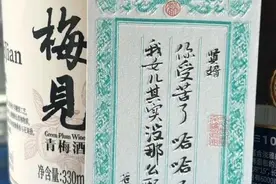 梅見
Green Plum Wine
青梅酒
净含量:330m
賢婿
你受苦了 咕咕
我女儿其实没那么